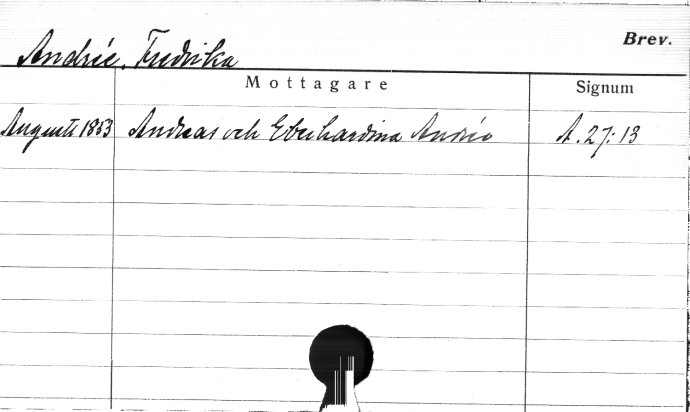 Brev.
Andrée, Fredrika
Mottagare
Signum
Augusti 1853 Andreas och Eberhardina Andrée A. 27: 13